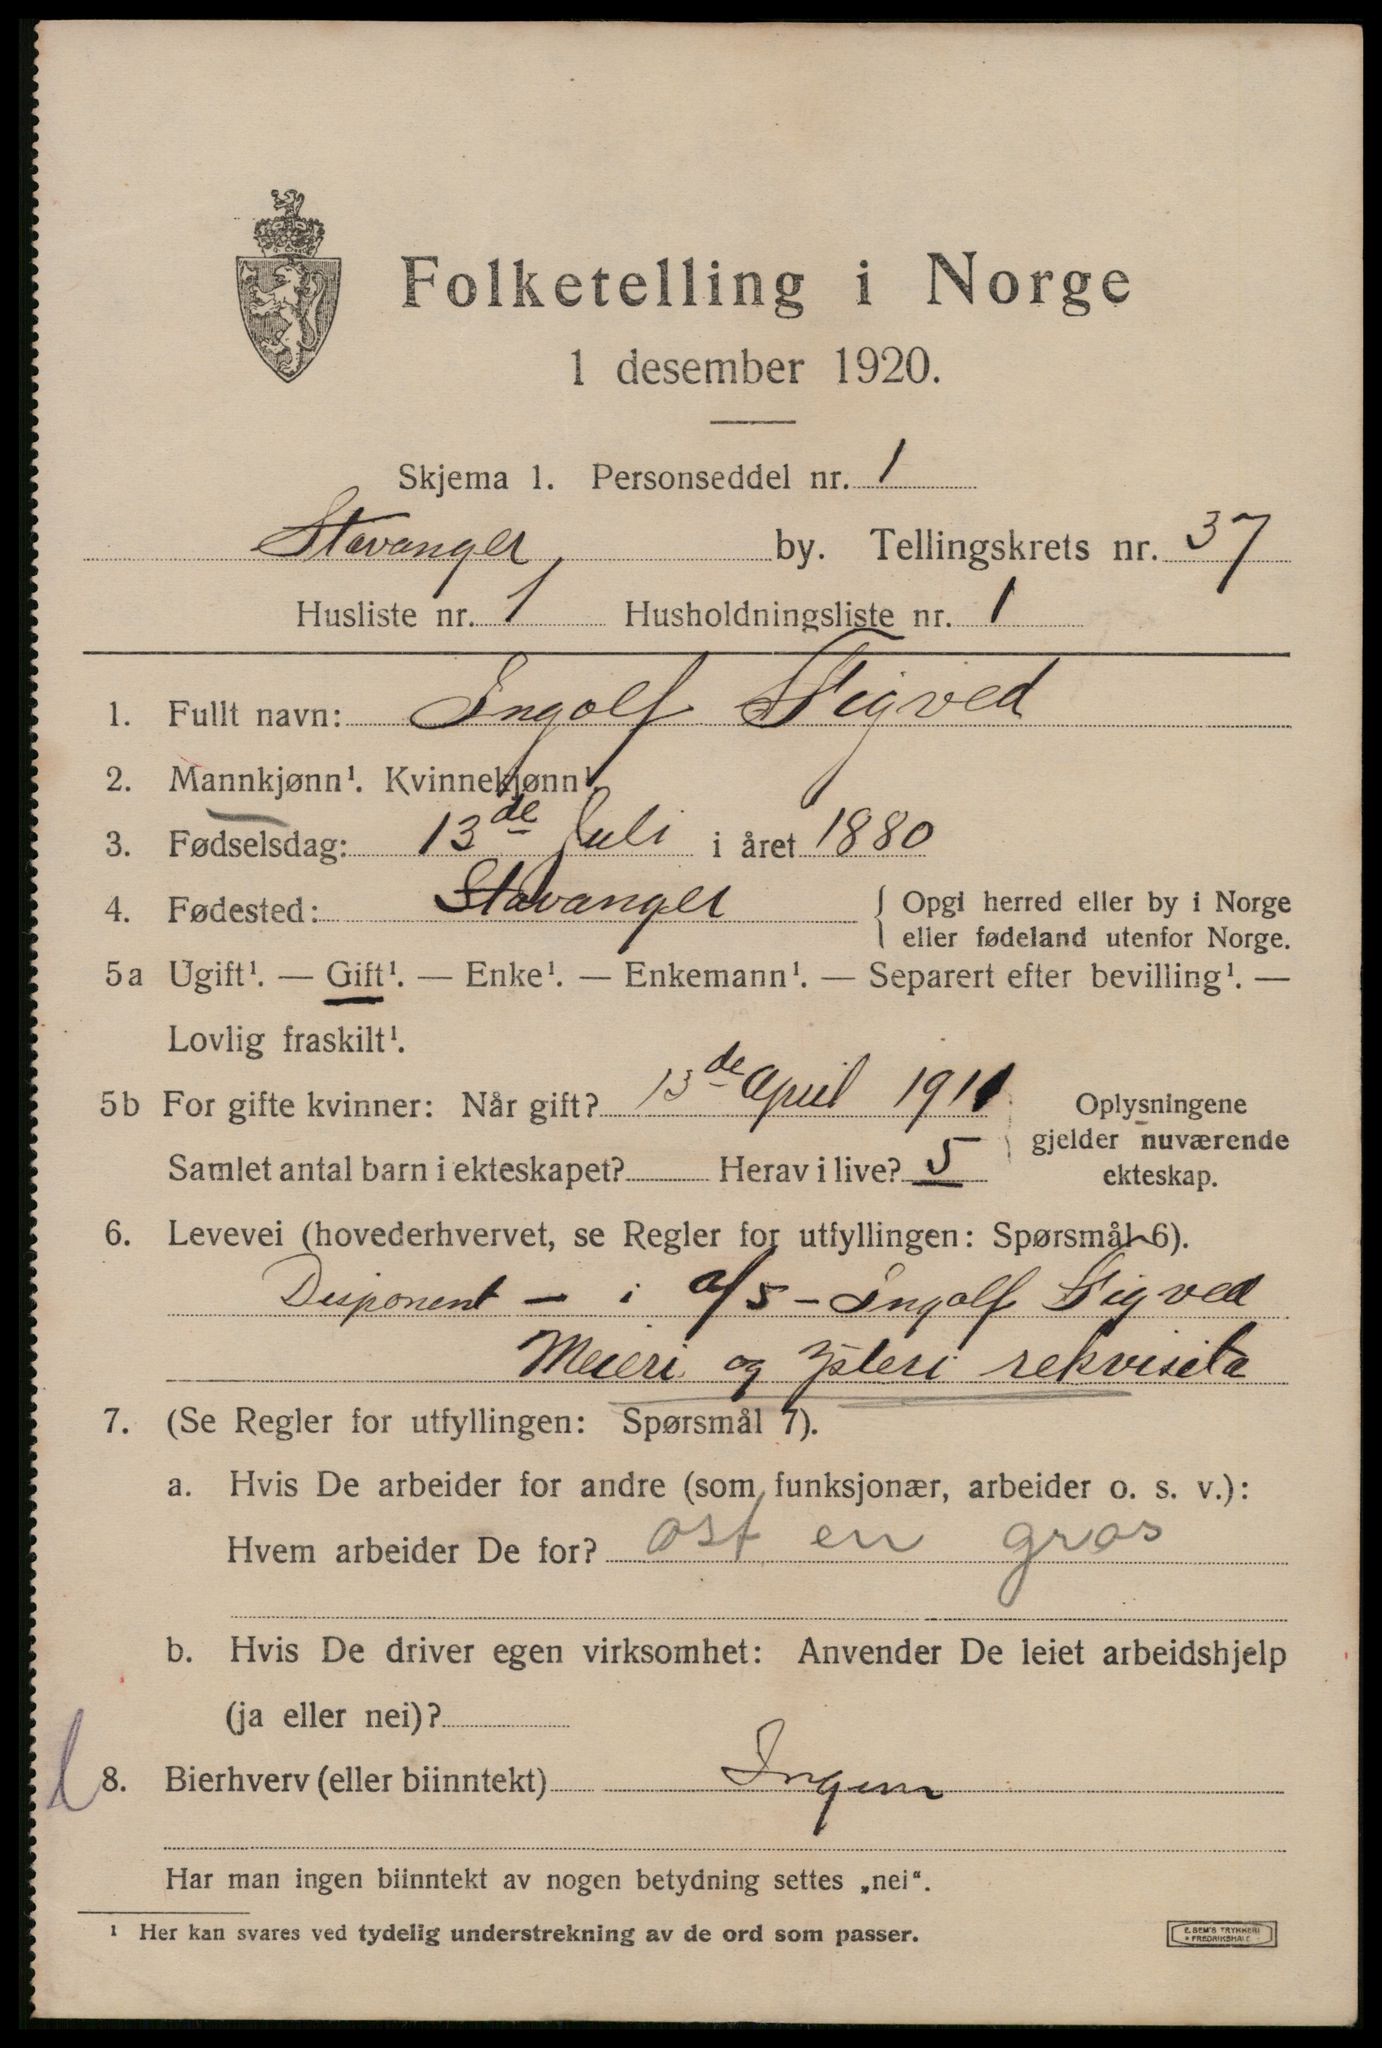 Folketelling i Norge
1 desember 1920.
Skjema 1. Personseddel nr. 1
Stavanger by. Tellingskrets nr. 37
Husliste nr. 1 Husholdningsliste nr. 1
1. Fullt navn: Ingolf Sigved
2. Mannkjønn¹. Kvinnekjønn¹.
3. Fødselsdag: 13de Juli i året 1880
4. Fødested: Stavanger { Opgi herred eller by i Norge
eller fødeland utenfor Norge.
5a Ugift¹. — Gift¹. — Enke¹. — Enkemann¹. — Separert efter bevilling¹. —
Lovlig fraskilt¹.
5b For gifte kvinner: Når gift? 13de April 1911 Oplysningene
gjelder nuværende
Samlet antal barn i ekteskapet? Herav i live? 5 ekteskap.
6. Levevei (hovederhvervet, se Regler for utfyllingen: Spørsmål 6).
Disponent — i a/s — Ingolf Sigved
Meieri og Ysteri rekvisita
7. (Se Regler for utfyllingen: Spørsmål 7).
a. Hvis De arbeider for andre (som funksjonær, arbeider o. s. v.):
Hvem arbeider De for? ost en gros
b. Hvis De driver egen virksomhet: Anvender De leiet arbeidshjelp
(ja eller nei)?
8. Bierhverv (eller biinntekt) Ingen
Har man ingen biinntekt av nogen betydning settes „nei“.
¹ Her kan svares ved tydelig understrekning av de ord som passer.
E. SEM'S TRYKKERI
FREDRIKSHALD